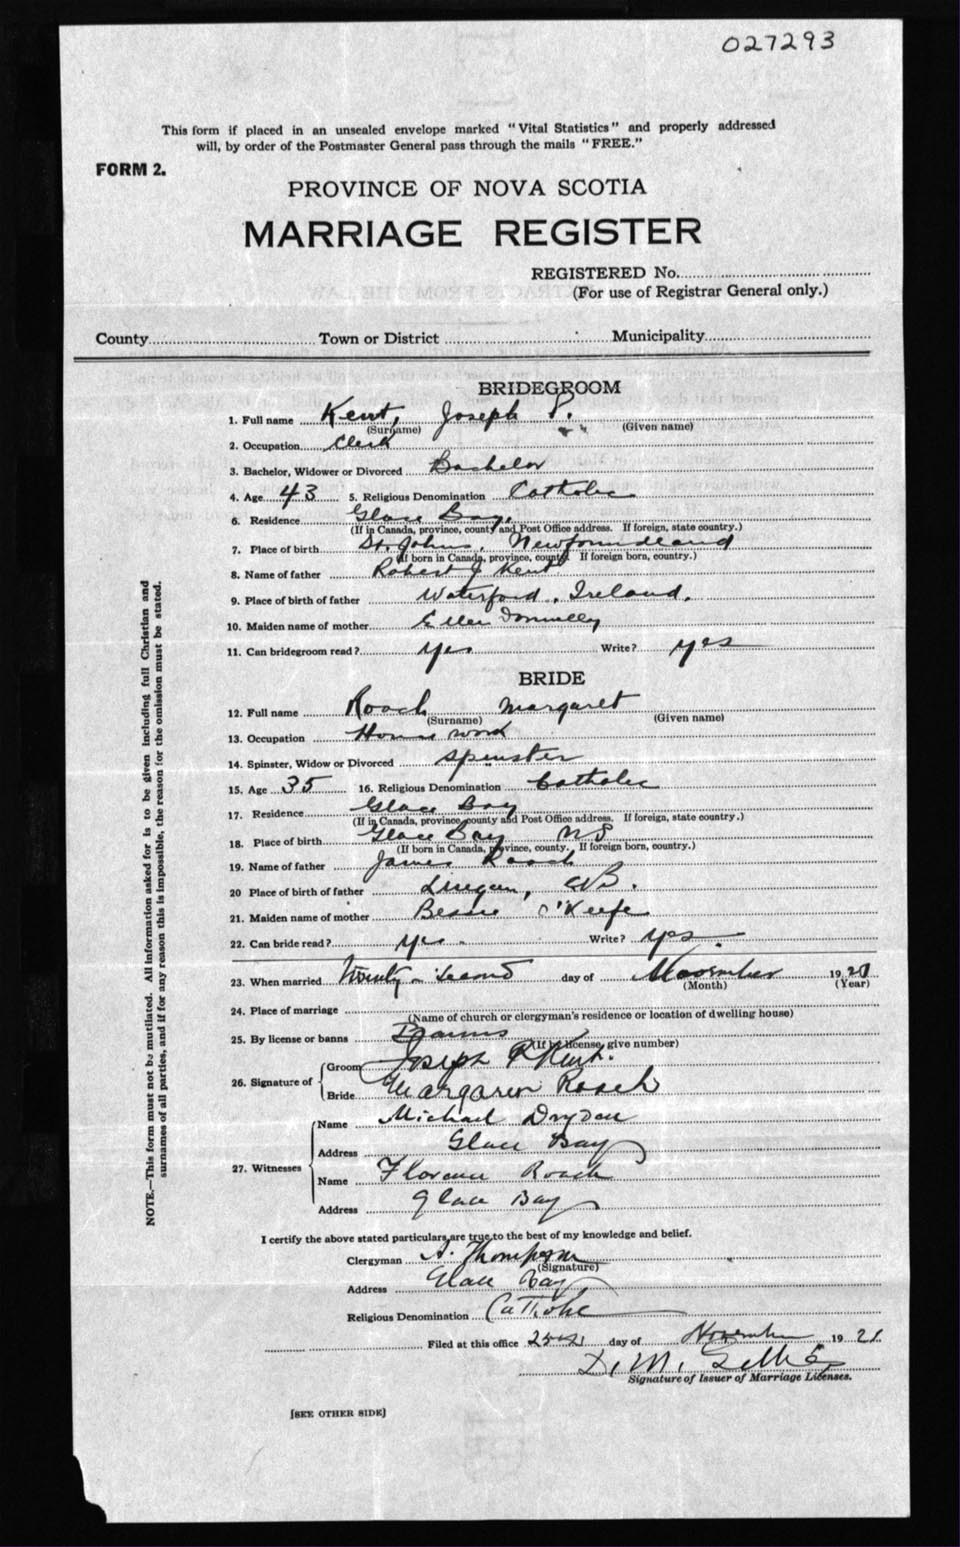 027293
This form if placed in an unsealed envelope marked "Vital Statistics" and properly addressed
will, by order of the Postmaster General pass through the mails "FREE."
FORM 2.
PROVINCE OF NOVA SCOTIA
MARRIAGE REGISTER
REGISTERED No.
(For use of Registrar General only.)
County Town or District Municipality
BRIDEGROOM
1. Full name Kent, Joseph P.
(Surname) (Given name)
2. Occupation Clerk
3. Bachelor, Widower or Divorced Bachelor
4. Age 43 5. Religious Denomination Catholic
6. Residence Glace Bay,
(If in Canada, province, county and Post Office address. If foreign, state country.)
7. Place of birth St. Johns, Newfoundland
(If born in Canada, province, county. If foreign born, country.)
8. Name of father Robert J Kent
9. Place of birth of father Waterford, Ireland.
10. Maiden name of mother Ellen Donnelly
11. Can bridegroom read? yes Write? yes
BRIDE
12. Full name Roach Margaret
(Surname) (Given name)
13. Occupation House work
14. Spinster, Widow or Divorced Spinster
15. Age 35 16. Religious Denomination Catholic
17. Residence Glace Bay
(If in Canada, province, county and Post Office address. If foreign, state country.)
18. Place of birth Glace Bay NS
(If born in Canada, province, county. If foreign born, country.)
19. Name of father James Roach
20 Place of birth of father Lingan, CB.
21. Maiden name of mother Bessie O'Keefe
22. Can bride read? yes. Write? yes.
23. When married Twenty-second day of November 1921
(Month) (Year)
24. Place of marriage
(Name of church or clergyman's residence or location of dwelling house)
25. By license or banns Banns
(If by license, give number)
26. Signature of Groom Joseph P Kent.
Bride Margaret Roach
27. Witnesses Name Michael Dryden
Address Glace Bay
Name Florence Roach
Address Glace Bay
I certify the above stated particulars are true to the best of my knowledge and belief.
Clergyman A. Thompson
(Signature)
Address Glace Bay
Religious Denomination Catholic
Filed at this office day of November 1921
D. M.
Signature of Issuer of Marriage Licenses.
[SEE OTHER SIDE]
NOTE.—This form must not be mutilated. All information asked for is to be given including full Christian and
surnames of all parties, and if for any reason this is impossible, the reason for the omission must be stated.